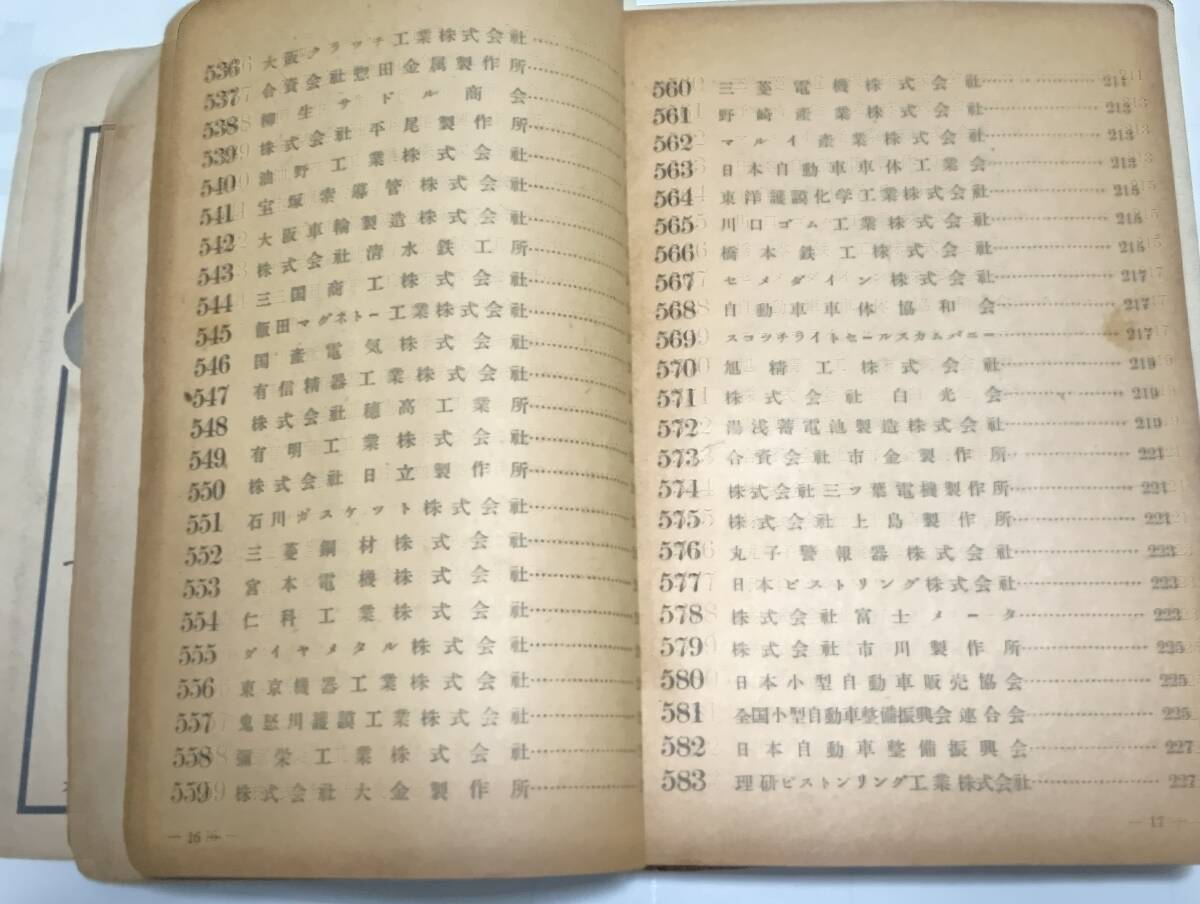 536 大阪クラッチ工業株式会社
537 合資会社惣田金属製作所
538 柳生サドル商会
539 株式会社平尾製作所
540 油野工業株式会社
541 宝塚索導管株式会社
542 大阪車輪製造株式会社
543 株式会社清水鉄工所
544 三国商工株式会社
545 飯田マグネトー工業株式会社
546 国産電気株式会社
547 有信精器工業株式会社
548 株式会社穂高工業所
549 有明工業株式会社
550 株式会社日立製作所
551 石川ガスケット株式会社
552 三菱鋼材株式会社
553 宮本電機株式会社
554 仁科工業株式会社
555 ダイヤメタル株式会社
556 東京機器工業株式会社
557 鬼怒川護謨工業株式会社
558 彌栄工業株式会社
559 株式会社大金製作所
— 16 —
560 三菱電機株式会社 211
561 野崎産業株式会社 213
562 マルイ産業株式会社 213
563 日本自動車車体工業会 213
564 東洋護謨化学工業株式会社 215
565 川口ゴム工業株式会社 215
566 橋本鉄工株式会社 215
567 セメダイン株式会社 217
568 自動車車体協和会 217
569 スコッチライトセールスカムパニー 217
570 旭精工株式会社 219
571 株式会社白光会 219
572 湯浅蓄電池製造株式会社 219
573 合資会社市金製作所 221
574 株式会社三ツ葉電機製作所 221
575 株式会社上島製作所 221
576 丸子警報器株式会社 223
577 日本ピストリング株式会社 223
578 株式会社富士メータ 223
579 株式会社市川製作所 225
580 日本小型自動車販売協会 225
581 全国小型自動車整備振興会連合会 225
582 日本自動車整備振興会 227
583 理研ピストンリング工業株式会社 227
— 17 —